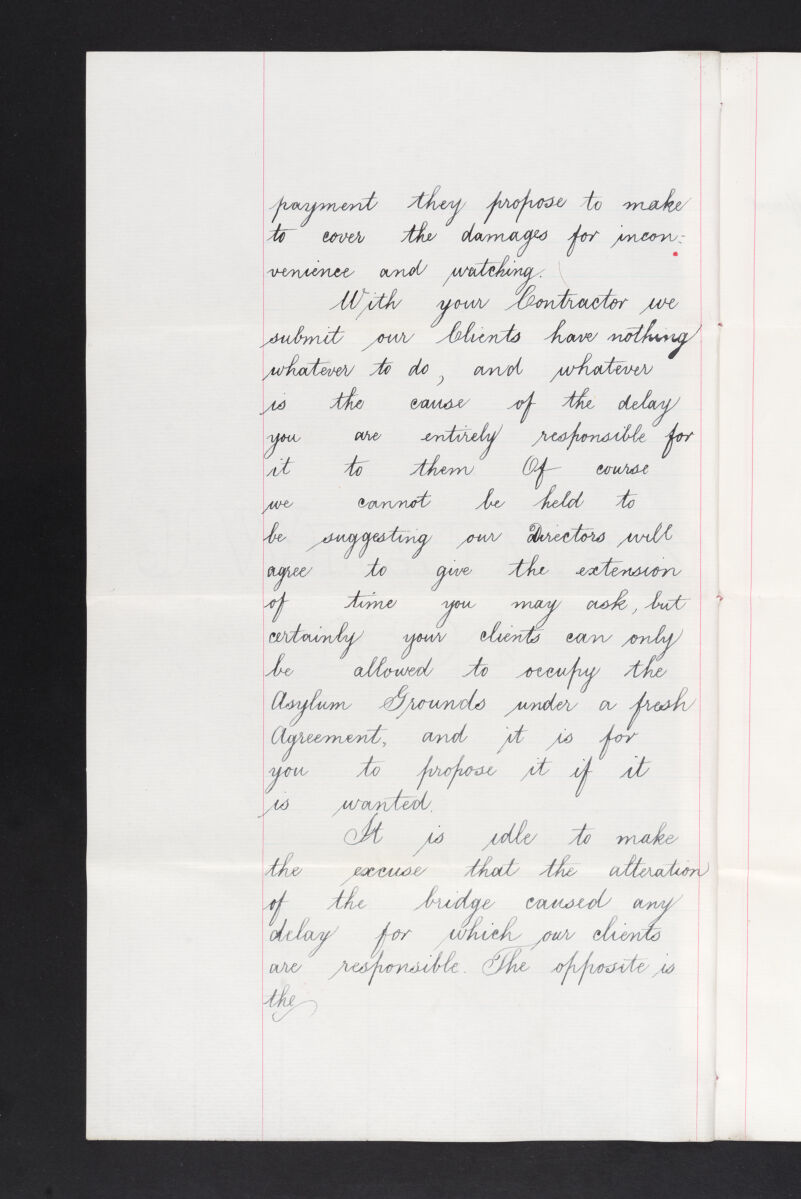 payment they propose to make
to cover the damages for incon:
venience and watching.
With your Contractor we
submit our Clients have nothing
whatever to do, and whatever
is the cause of the delay
you are entirely responsible for
it to them Of course
we cannot be held to
be suggesting our Directors will
agree to give the extension
of time you may ask, but
certainly your clients can only
be allowed to occupy the
Asylum Grounds under a fresh
Agreement, and it is for
you to propose it if it
is wanted.
It is idle to make
the excuse that the alteration
of the bridge caused any
delay for which our clients
are responsible. The opposite is
the